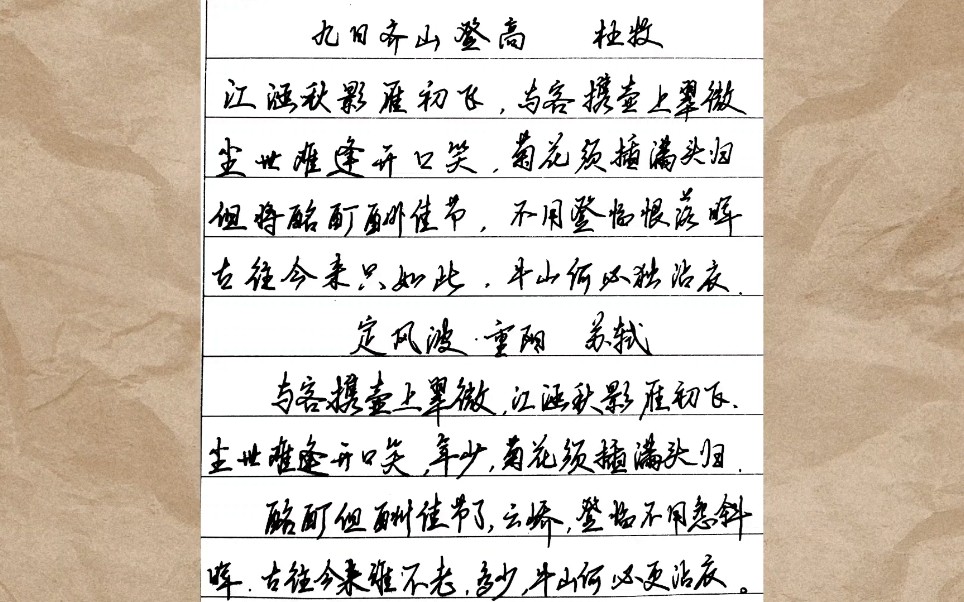 九日齐山登高 杜牧
江涵秋影雁初飞,与客携壶上翠微
尘世难逢开口笑,菊花须插满头归
但将酩酊酬佳节,不用登临恨落晖
古往今来只如此,牛山何必独沾衣.
定风波·重阳 苏轼
与客携壶上翠微,江涵秋影雁初飞.
尘世难逢开口笑,年少,菊花须插满头归.
酩酊但酬佳节了,云峤,登临不用怨斜
晖.古往今来谁不老,多少,牛山何必更沾衣。